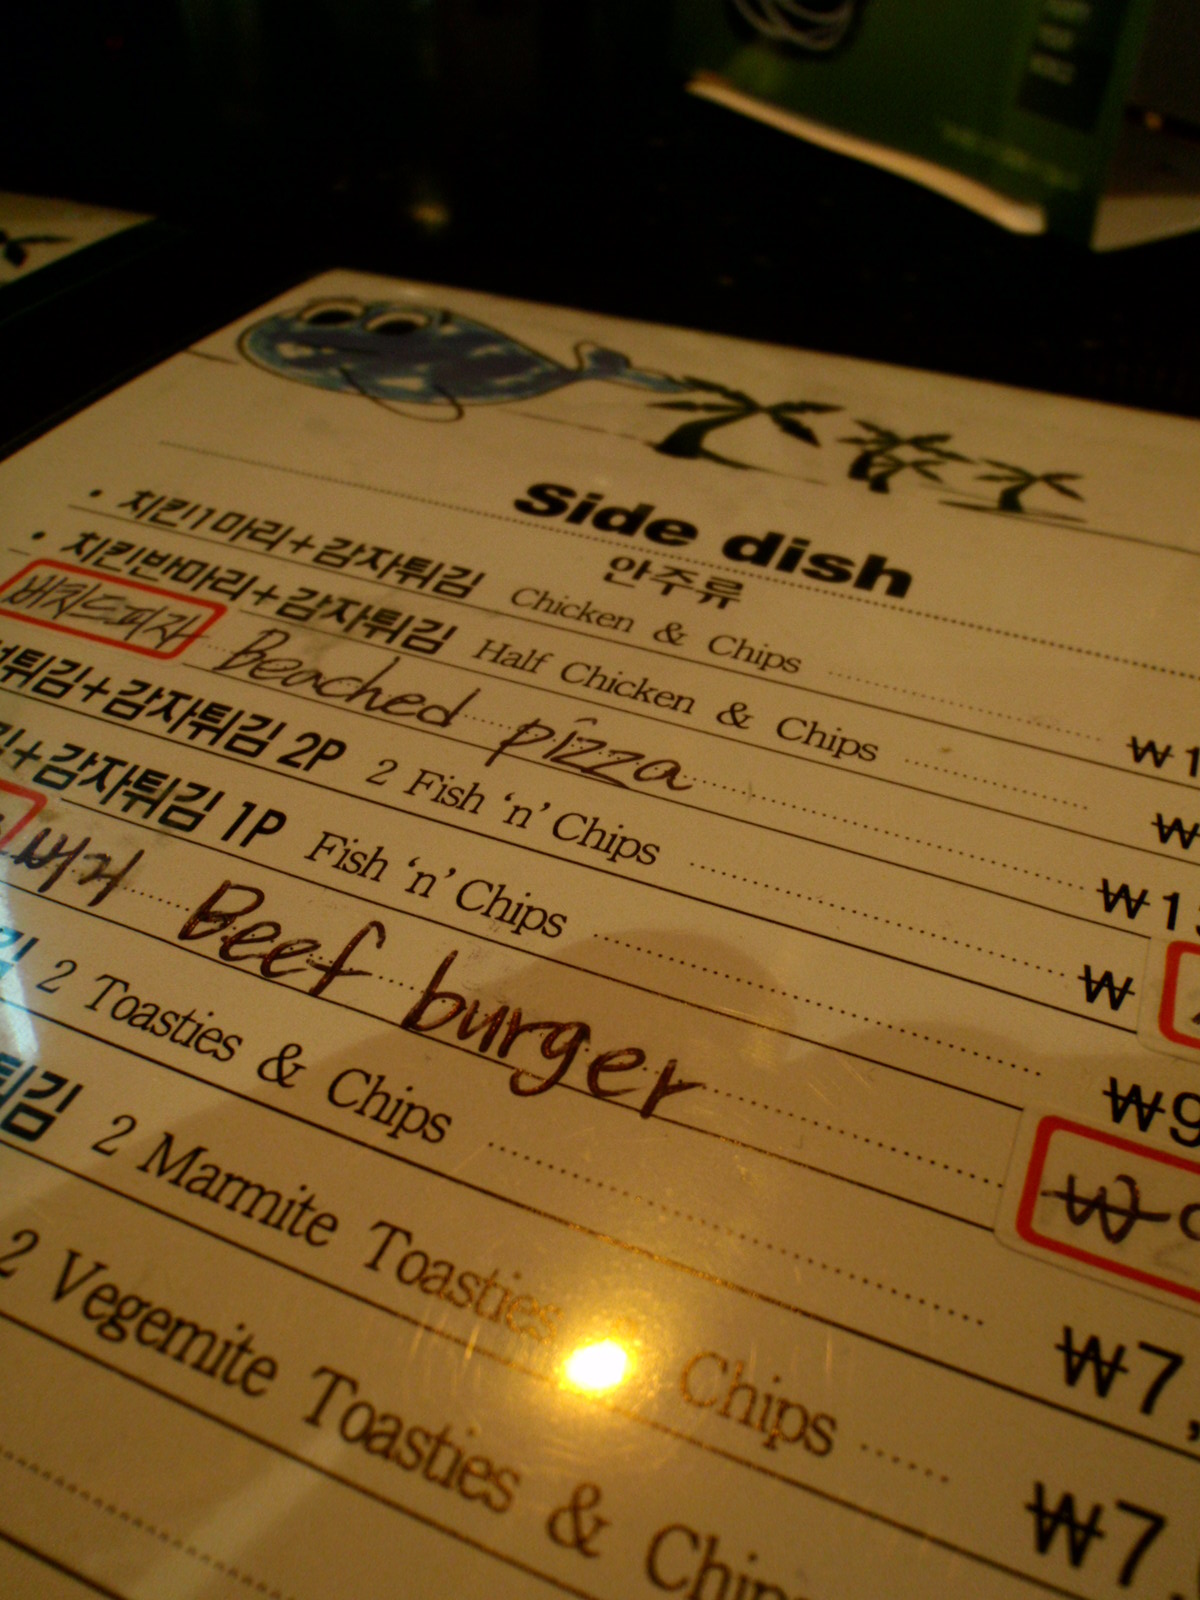 Side dish
안주류
• 치킨1마리+감자튀김 Chicken & Chips ₩1
• 치킨반마리+감자튀김 Half Chicken & Chips ₩
비치드피자 Beached pizza ₩1
튀김+감자튀김 2P 2 Fish 'n' Chips ₩
김+감자튀김 1P Fish 'n' Chips ₩9
버거 Beef burger ₩
김 2 Toasties & Chips ₩7,
튀김 2 Marmite Toasties Chips ₩7
2 Vegemite Toasties & Chips